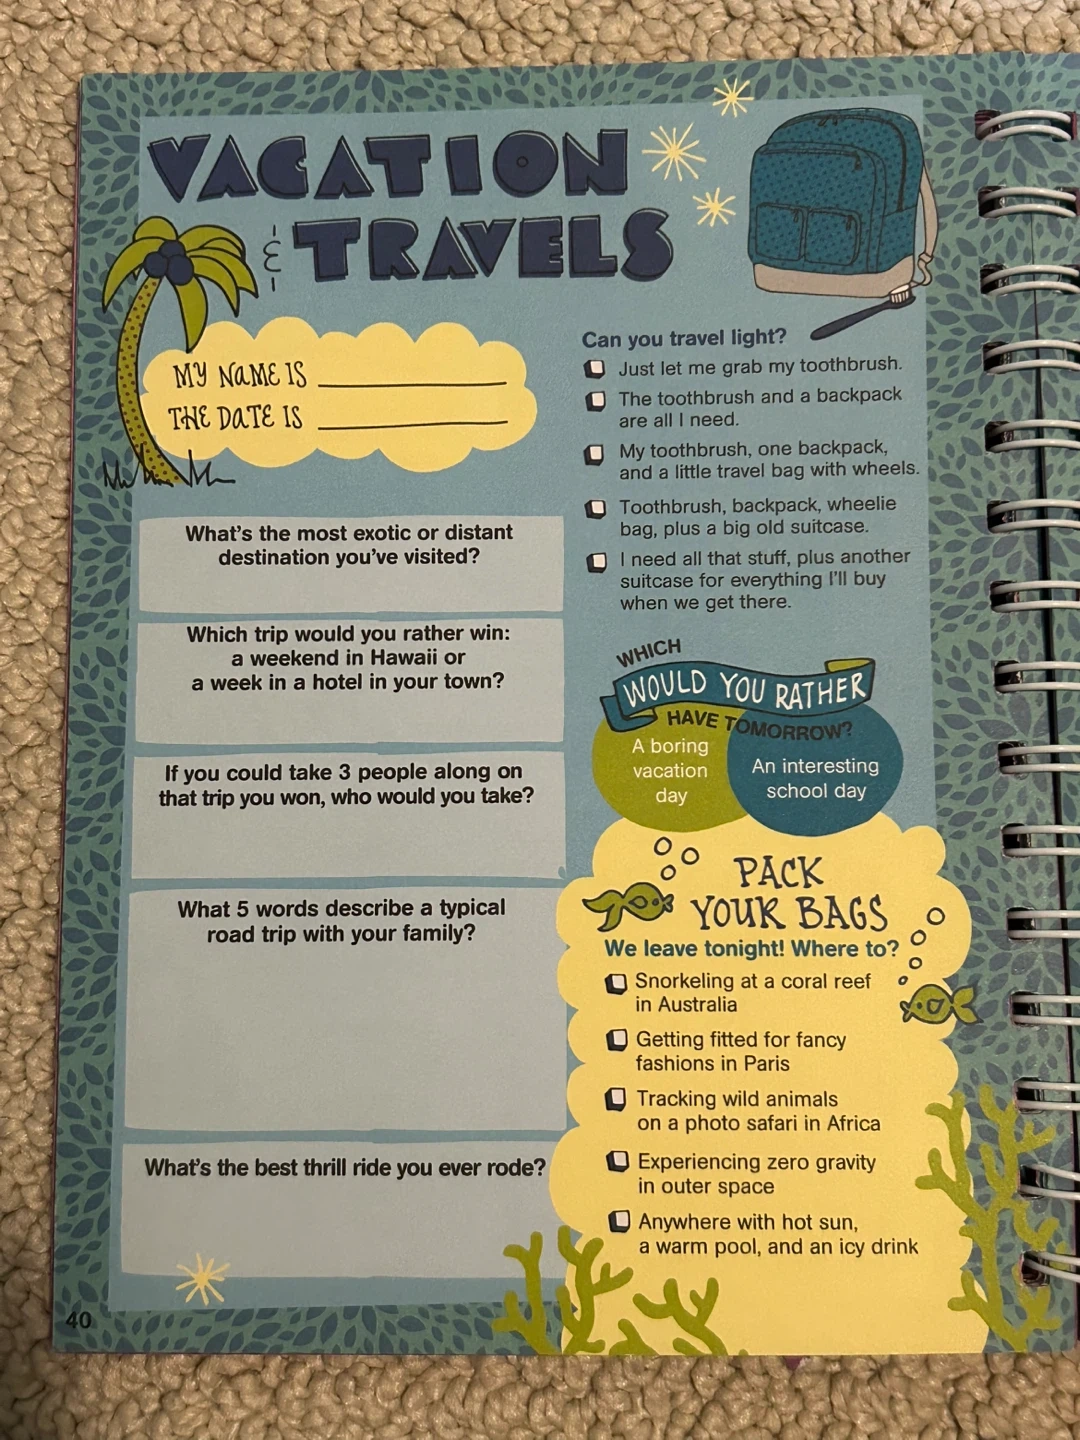 VACATION
& TRAVELS
MY NAME IS
THE DATE IS
What's the most exotic or distant
destination you've visited?
Which trip would you rather win:
a weekend in Hawaii or
a week in a hotel in your town?
If you could take 3 people along on
that trip you won, who would you take?
What 5 words describe a typical
road trip with your family?
What's the best thrill ride you ever rode?
40
Can you travel light?
Just let me grab my toothbrush.
The toothbrush and a backpack
are all I need.
My toothbrush, one backpack,
and a little travel bag with wheels.
Toothbrush, backpack, wheelie
bag, plus a big old suitcase.
I need all that stuff, plus another
suitcase for everything I'll buy
when we get there.
WHICH
WOULD YOU RATHER
HAVE TOMORROW?
A boring
vacation
day
An interesting
school day
PACK
YOUR BAGS
We leave tonight! Where to?
Snorkeling at a coral reef
in Australia
Getting fitted for fancy
fashions in Paris
Tracking wild animals
on a photo safari in Africa
Experiencing zero gravity
in outer space
Anywhere with hot sun,
a warm pool, and an icy drink